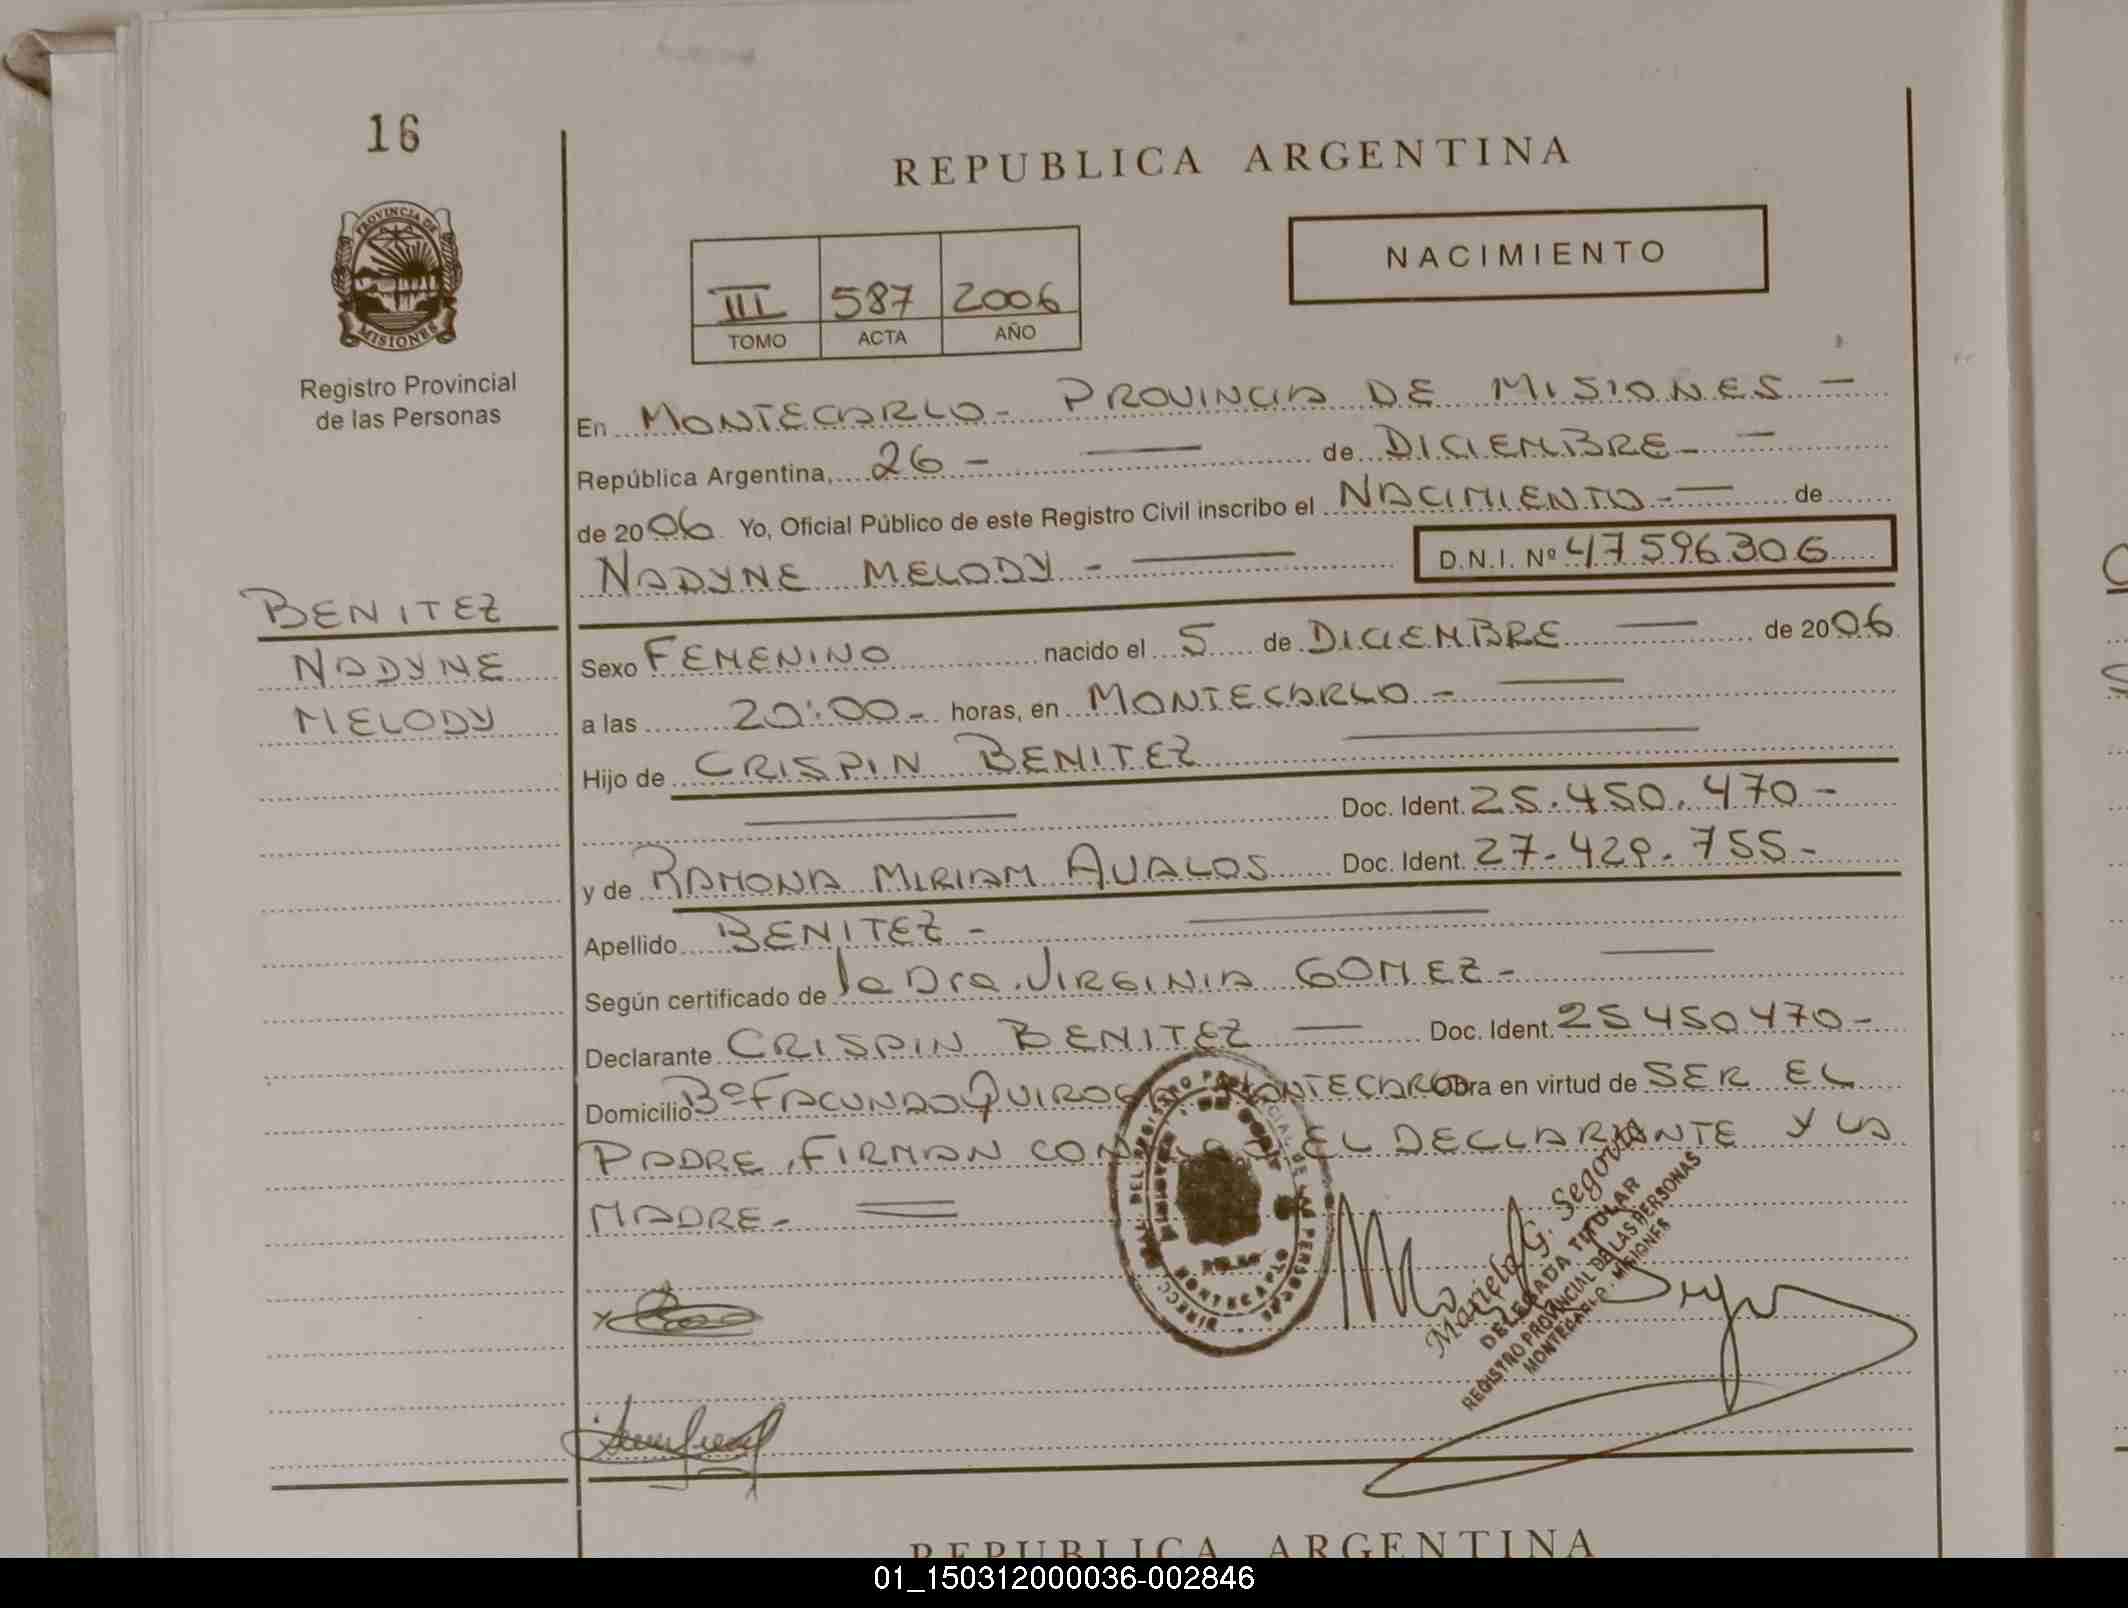 16
REPUBLICA ARGENTINA
PROVINCIA DE
MISIONES
Registro Provincial
de las Personas
III 587 2006
TOMO ACTA AÑO
NACIMIENTO
En MONTECARLO - PROVINCIA DE MISIONES -
República Argentina, 26 - de DICIEMBRE -
de 2006 Yo, Oficial Público de este Registro Civil inscribo el NACIMIENTO - de
NADYNE MELODY - D.N.I. Nº 47596306
BENITEZ
NADYNE
MELODY
Sexo FEMENINO nacido el 5 de DICIEMBRE de 2006
a las 20:00 - horas, en MONTECARLO -
Hijo de CRISPIN BENITEZ
Doc. Ident. 25.450.470 -
y de RAMONA MIRIAM AVALOS Doc. Ident. 27.429.755 -
Apellido BENITEZ -
Según certificado de la Dra. VIRGINIA GOMEZ -
Declarante CRISPIN BENITEZ Doc. Ident. 25450470 -
Domicilio Bº FACUNDO QUIROGA MONTECARLO Obra en virtud de SER EL
PADRE, FIRMAN EL DECLARANTE Y LA
MADRE -
Mariela G. Segovia
DELEGADA TITULAR
REGISTRO PROVINCIAL DE LAS PERSONAS
MONTECARLO - MISIONES
REPUBLICA ARGENTINA
01_150312000036-002846